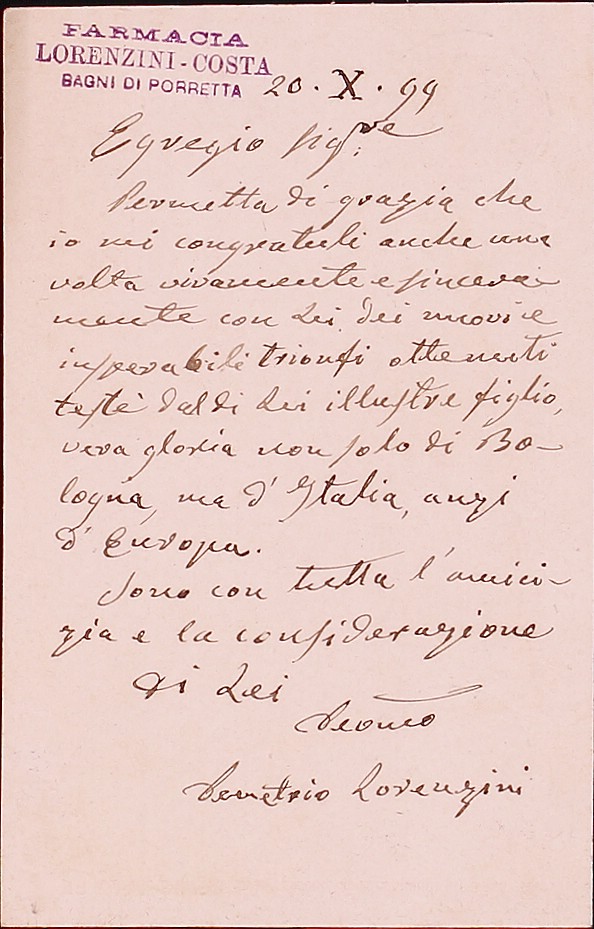 FARMACIA
LORENZINI-COSTA
BAGNI DI PORRETTA
20 . X . 99
Egregio Sig.re
Permetta di grazia che
io mi congratuli anche una
volta vivamente e sincera-
mente con Lei, dei nuovi e
insperabili trionfi ottenuti
testè dal di Lei illustre figlio,
vera gloria non solo di Bo-
logna, ma d' Italia, anzi
d' Europa.
Sono con tutta l' amici-
zia e la considerazione
di Lei
Devmo
Demetrio Lorenzini